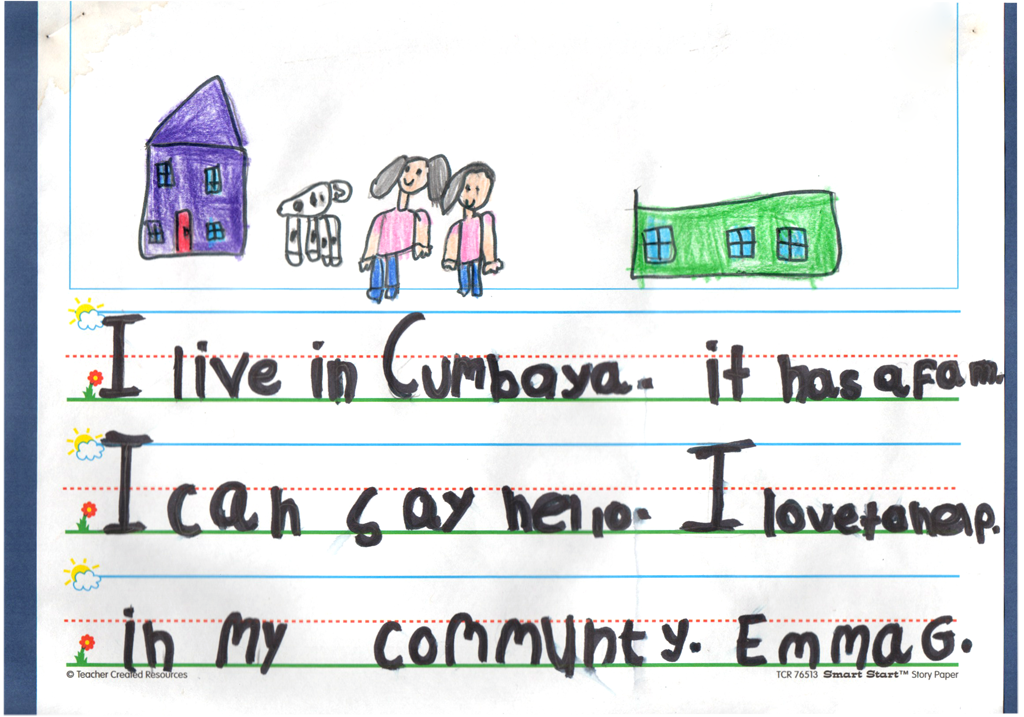 I live in Cumbaya. it has a fam.
I can say hello. I love to help.
in my communty. Emma G.
© Teacher Created Resources TCR 76513 Smart Start™ Story Paper